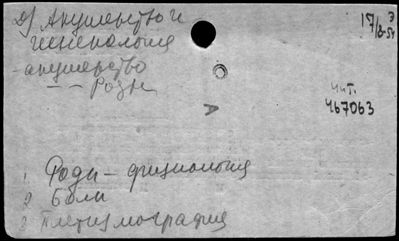 д) Акушерство и
гинекология
- акушерство
- - Роды
17/8-54
Э
чит.
467063
А
1 Роды - физиология
2 Боли
3 Плетизмография